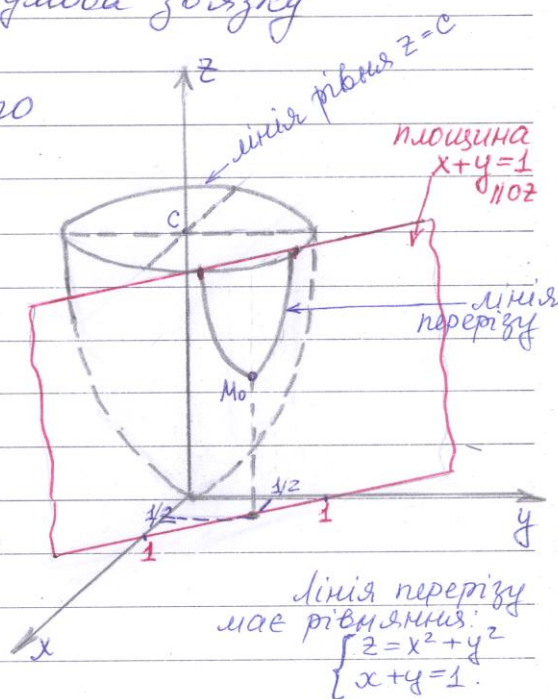 умова зв'язку
го
z
лінія рівня z=c
площина
x+y=1
||OZ
c
лінія
перерізу
M₀
1/2
1/2
1
1
y
x
Лінія перерізу
має рівняння:
{ z = x² + y²
x + y = 1.